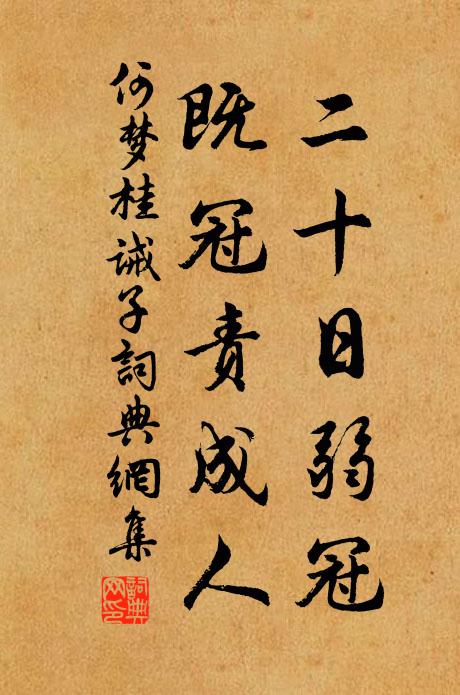 二十日弱冠
既冠責成人
何梦桂诫子詞典網集
詞典
网印